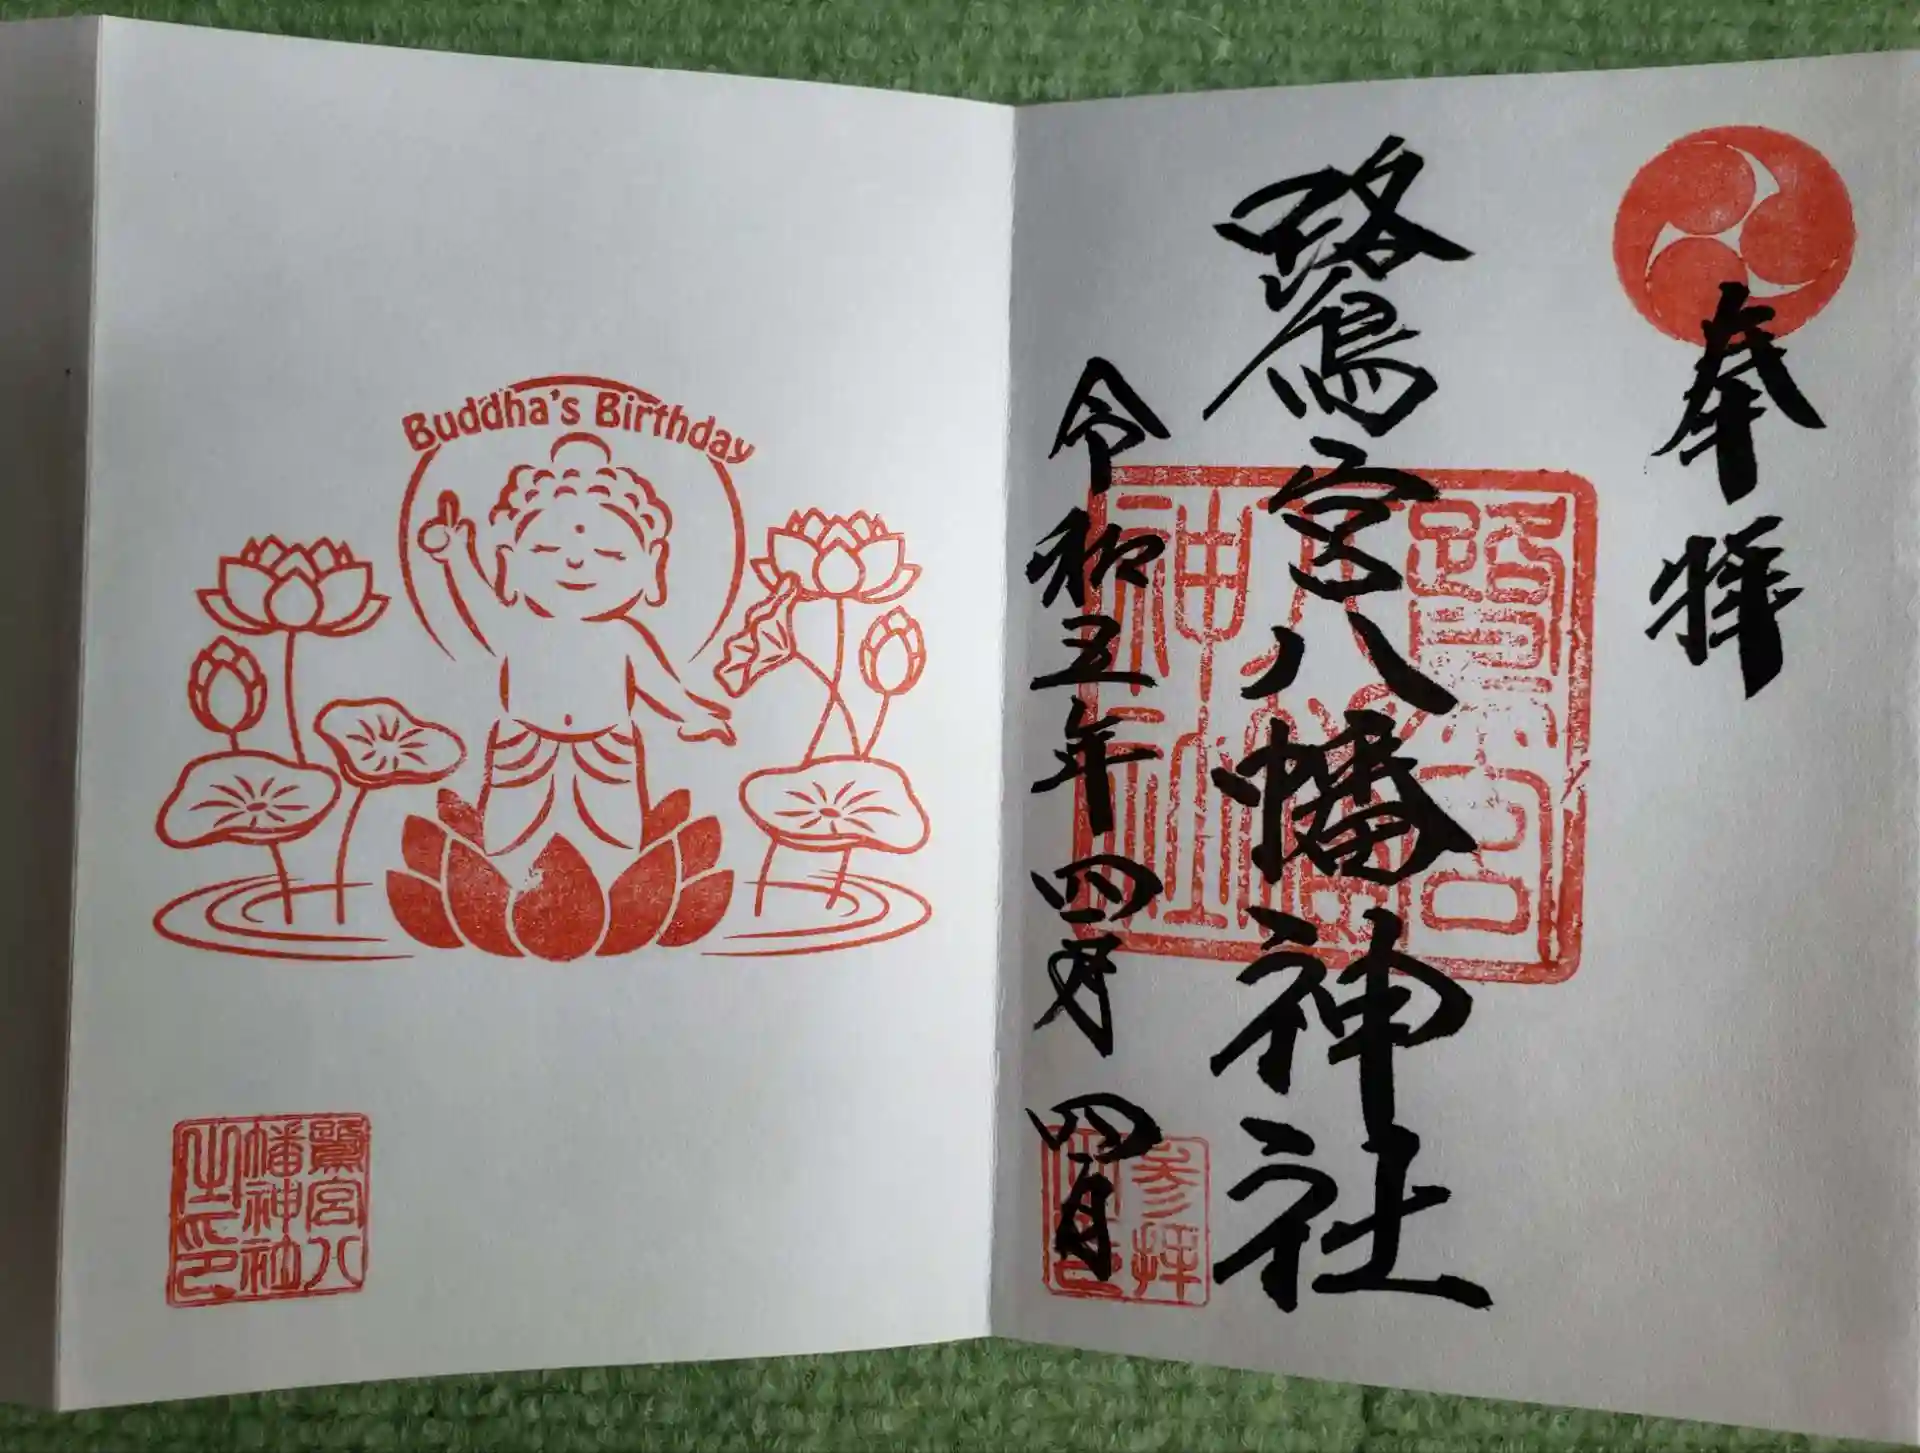 奉拝
鷺宮八幡神社
令和五年四月四日
鷺宮
八幡
神社
参拝
Buddha's Birthday
鷺宮八
幡神社
之印